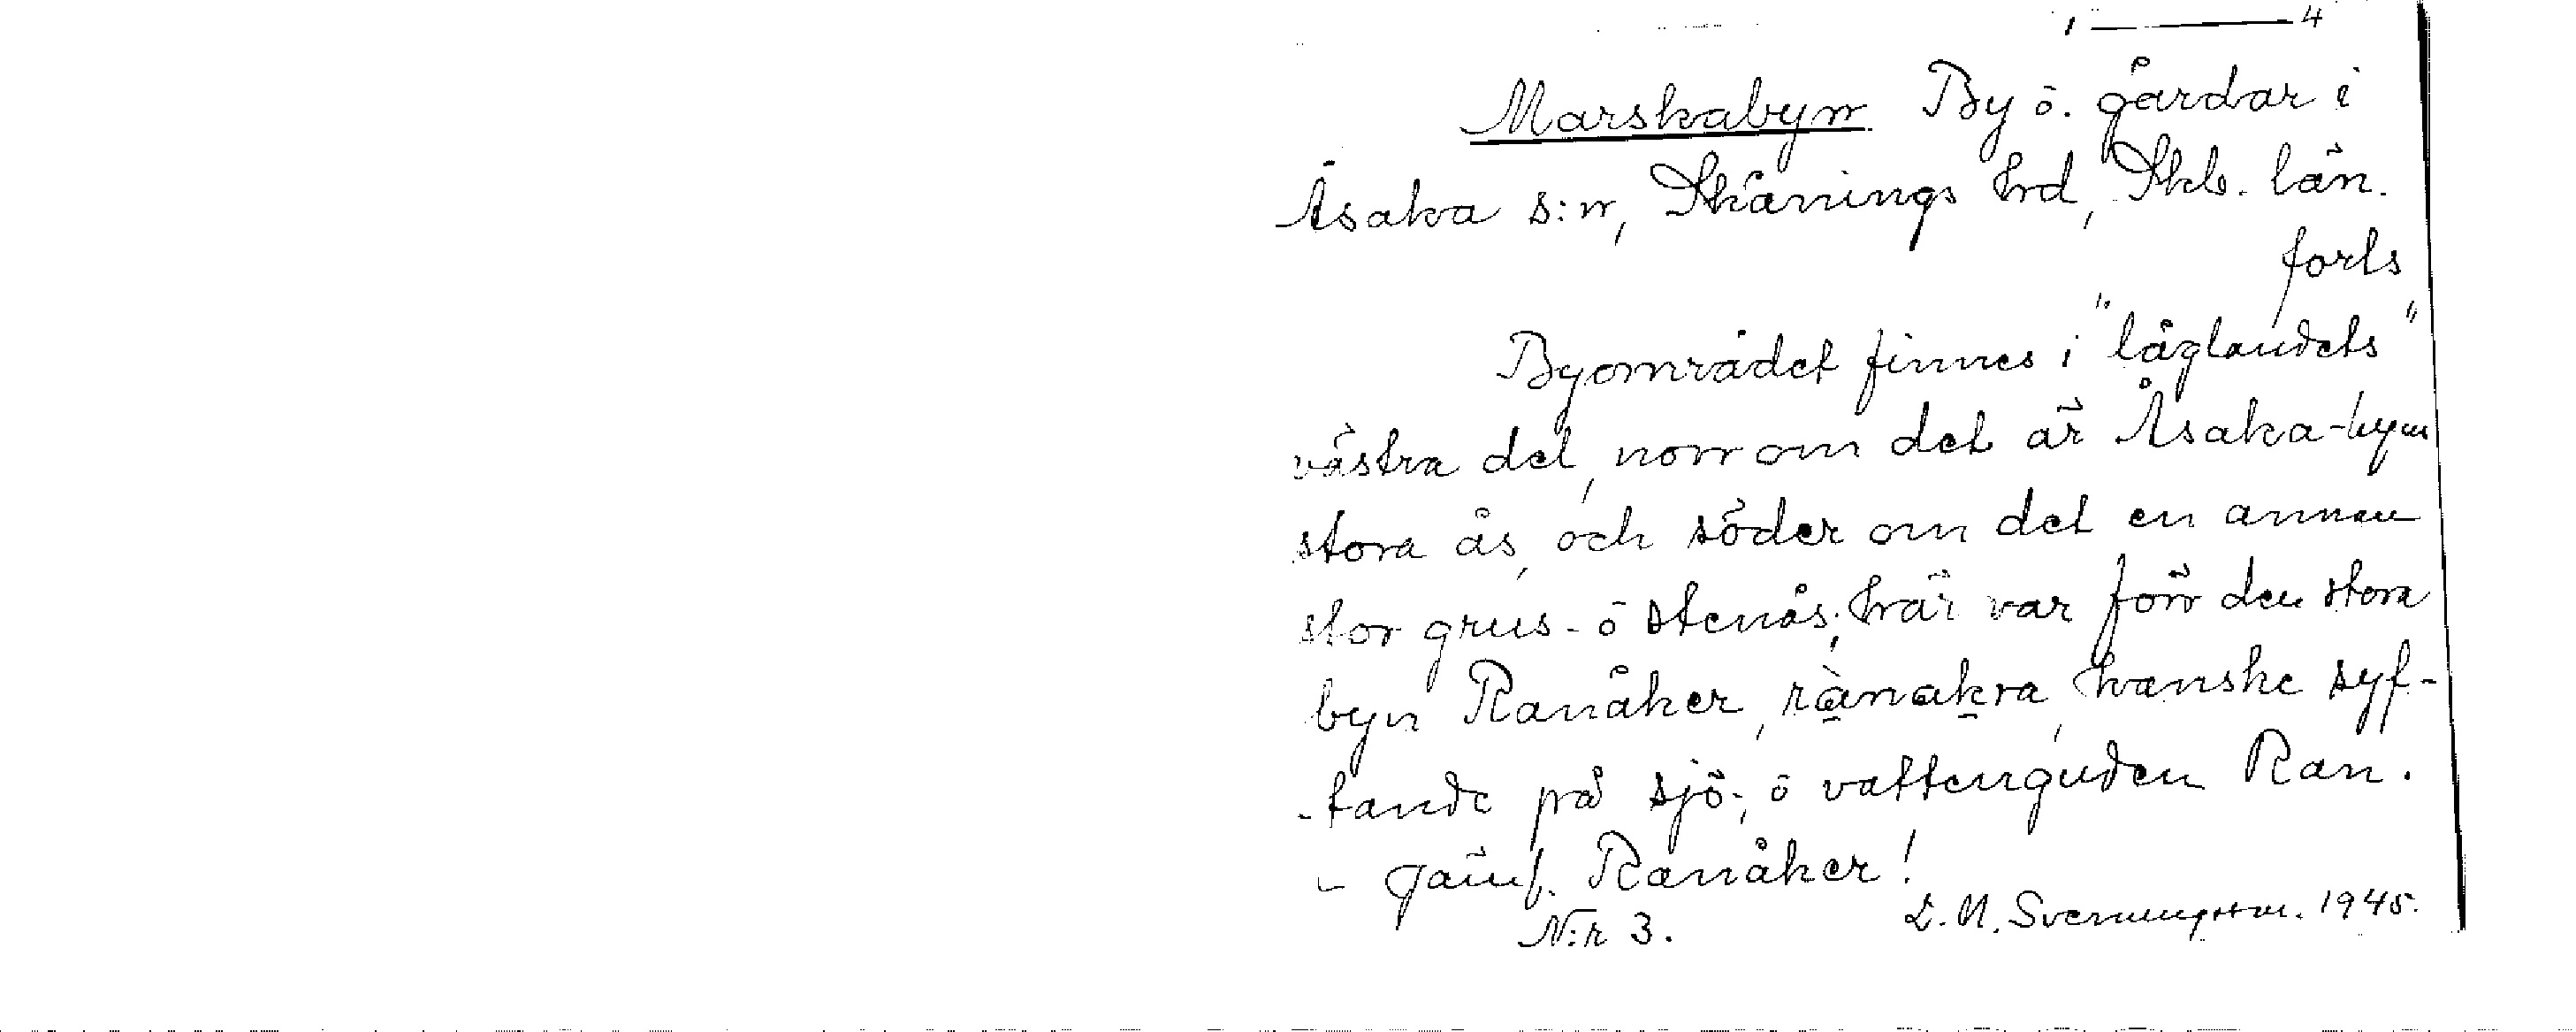 1 — 4
Marskabyn By ō. gårdar i
Åsaka s:n, Skånings hrd, Skb. län.
forts
Byområdet finnes i "låglandets"
västra del, norr om det är Åsaka-byns
stora ås, och söder om det en annan
stor grus- ō stenås; här var förr den stora
byn Ranåker, rànakra, kanske syf-
-tande på sjö-, ō vattenguden Ran.
- Jämf. Ranåker!
N:r 3. L. M. Svenungsson. 1945.